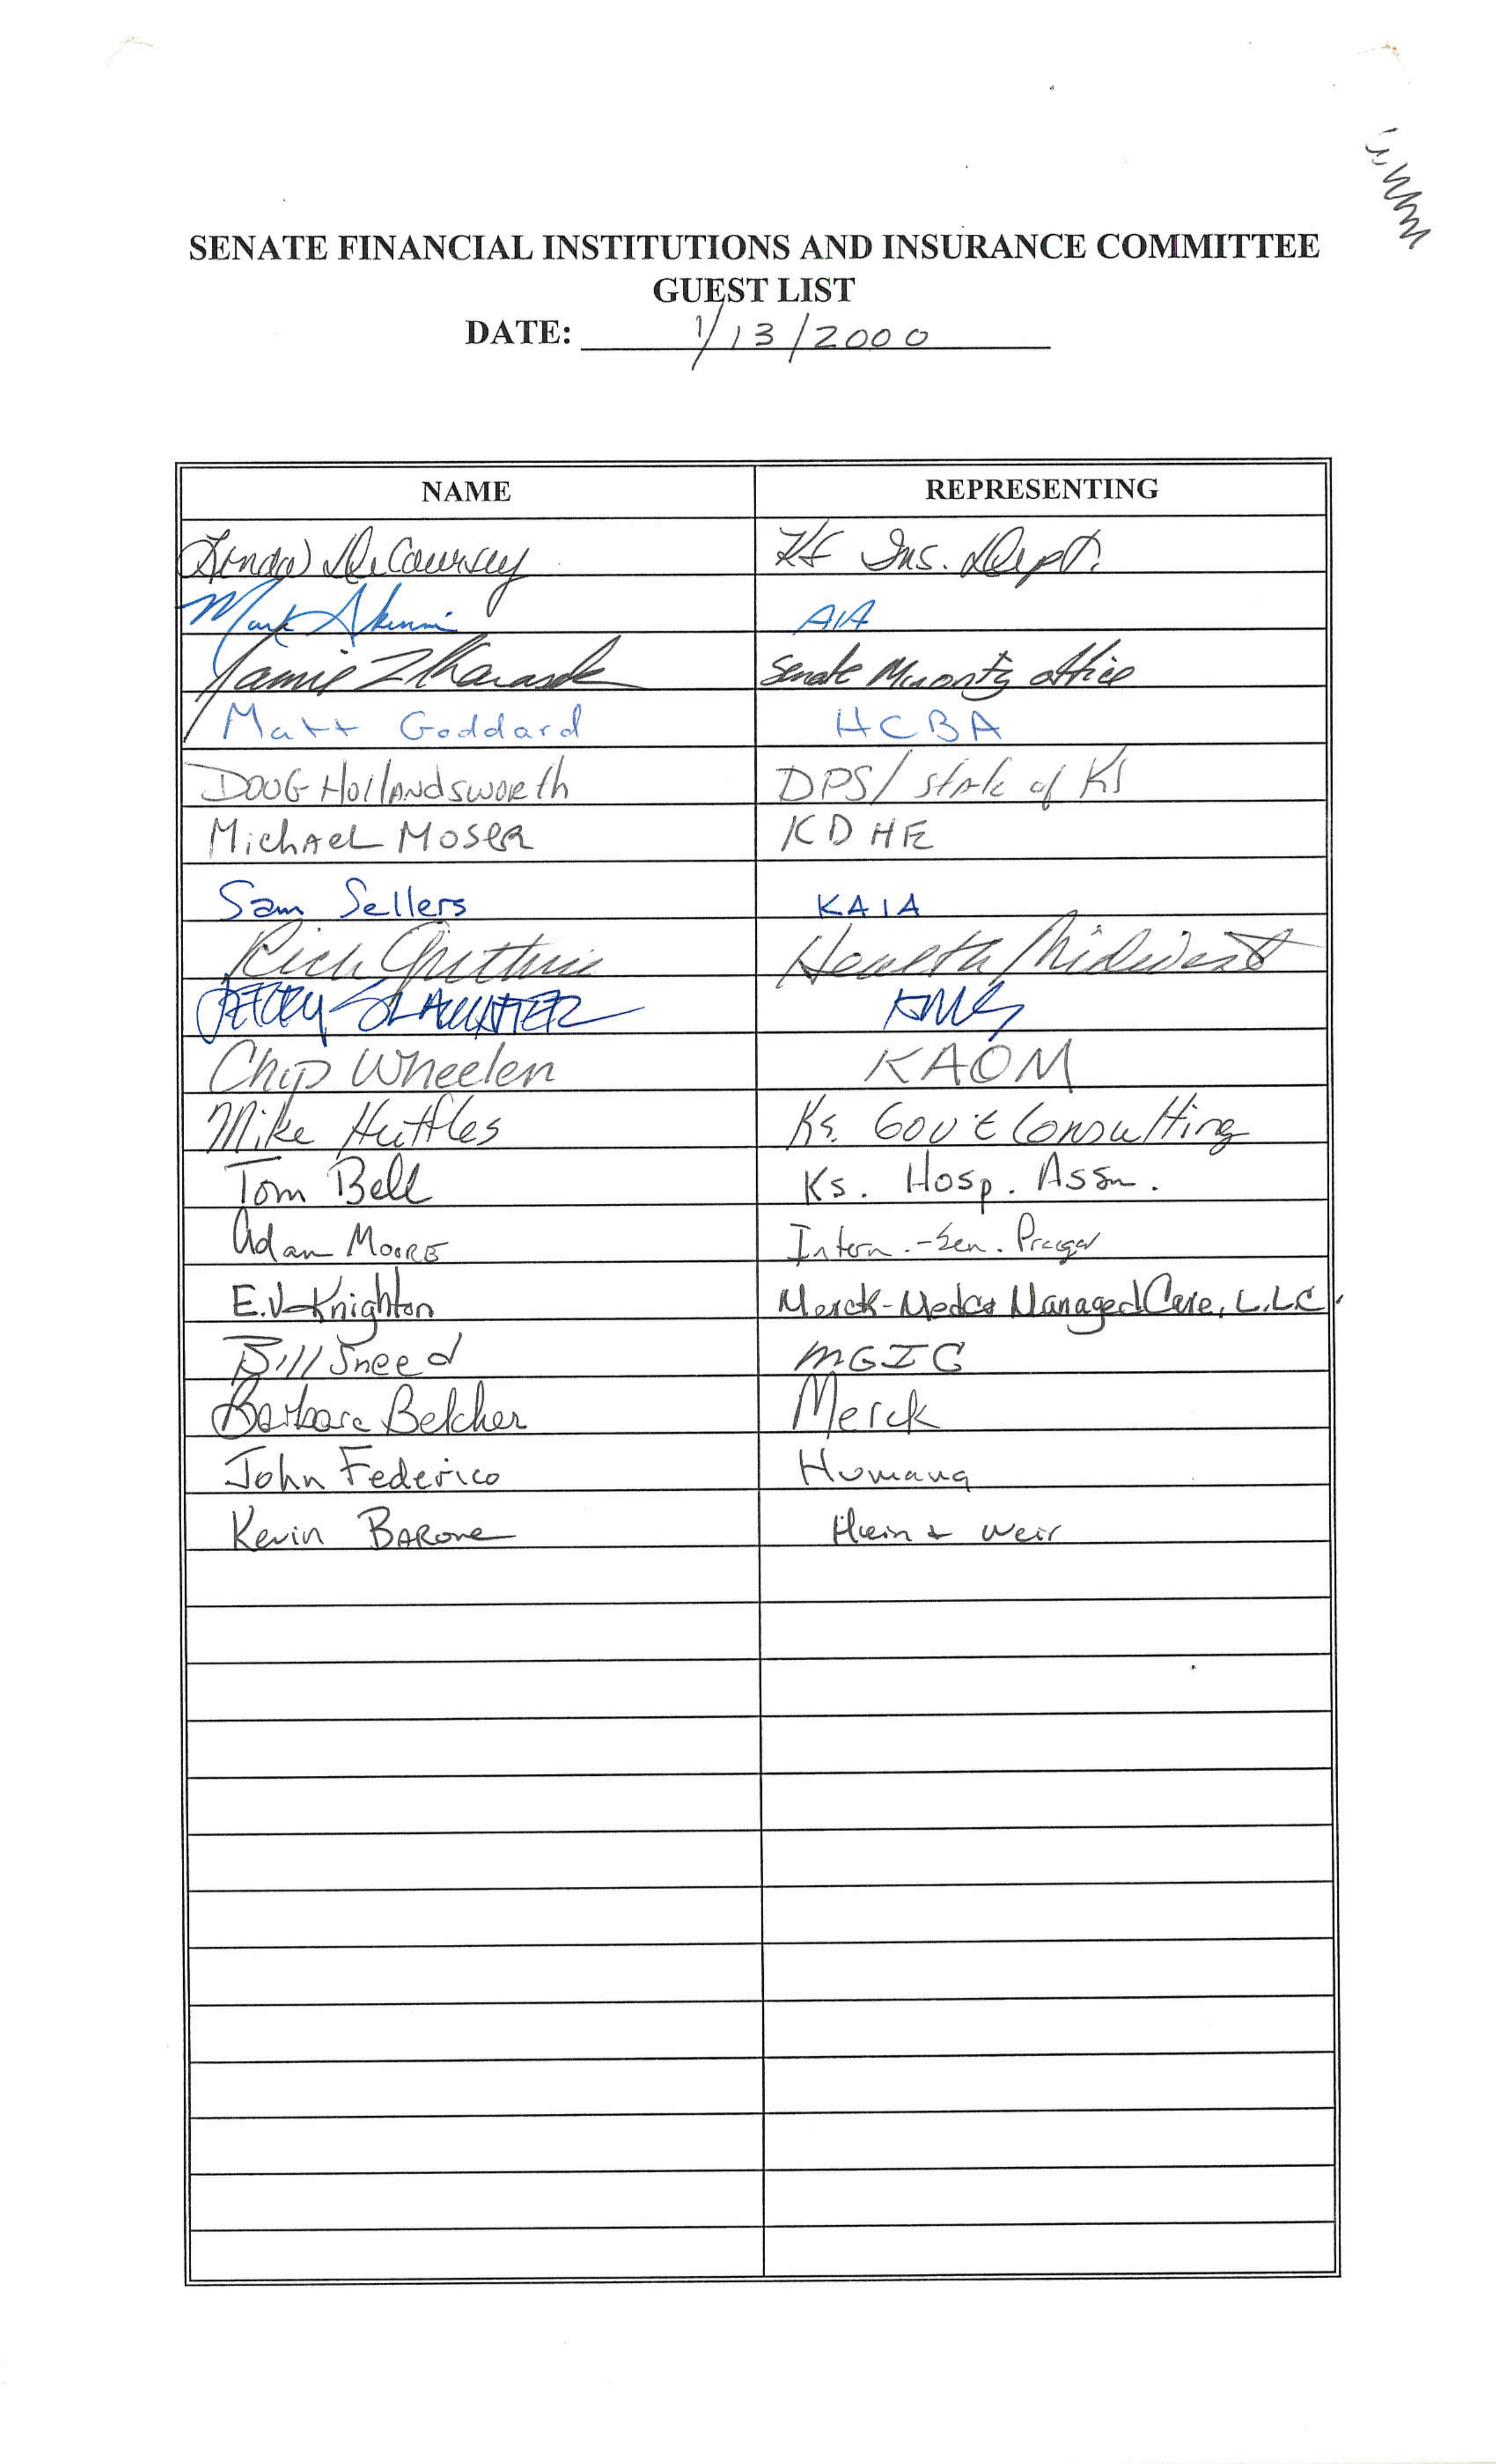 SENATE FINANCIAL INSTITUTIONS AND INSURANCE COMMITTEE
GUEST LIST
DATE: 1/13/2000
NAME REPRESENTING
Linda De Coursey KS Ins. Dept.
Mark AIA
Jamie Senate Minority office
Matt Goddard HCBA
Doug Hollandsworth DPS/ State of KS
Michael Moser KDHE
Sam Sellers KAIA
Rich Guthrie Health Midwest
Jerry Slaughter KMS
Chip Wheelen KAOM
Mike Huttles Ks. Gov't Consulting
Tom Bell Ks. Hosp. Assn.
Adam Moore Intern - Sen. Praeger
E.V. Knighton Merck-Medco Managed Care, L.L.C.
Bill Sneed MGIC
Barbara Belcher Merck
John Federico Humana
Kevin Barone Hein + Weir